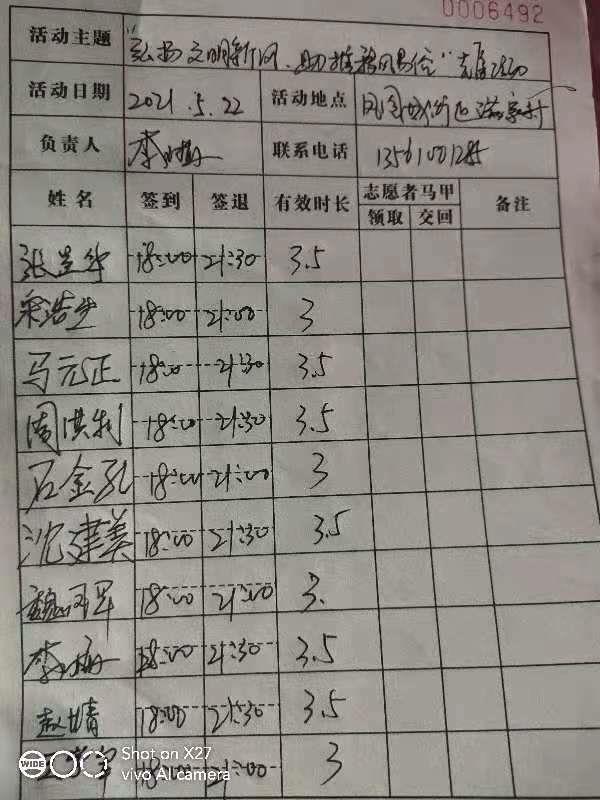 0006492
活动主题 "弘扬文明新风、助推移风易俗"志愿活动
活动日期 2021.5.22 活动地点
负责人 李 联系电话
姓名 签到 签退 有效时长 志愿者马甲 备注
领取 交回
18:00 21:30 3.5
宋浩 18:00 21:00 3
马元正 18:00 21:30 3.5
周洪利 18:00 21:30 3.5
石金孔 18:00 21:00 3
沈建美 18:00 21:30 3.5
魏 18:00 21:00 3.
李 18:00 21:30 3.5
赵婧 18:00 21:30 3.5
18:00 21:00 3
WIDE
Shot on X27
vivo AI camera